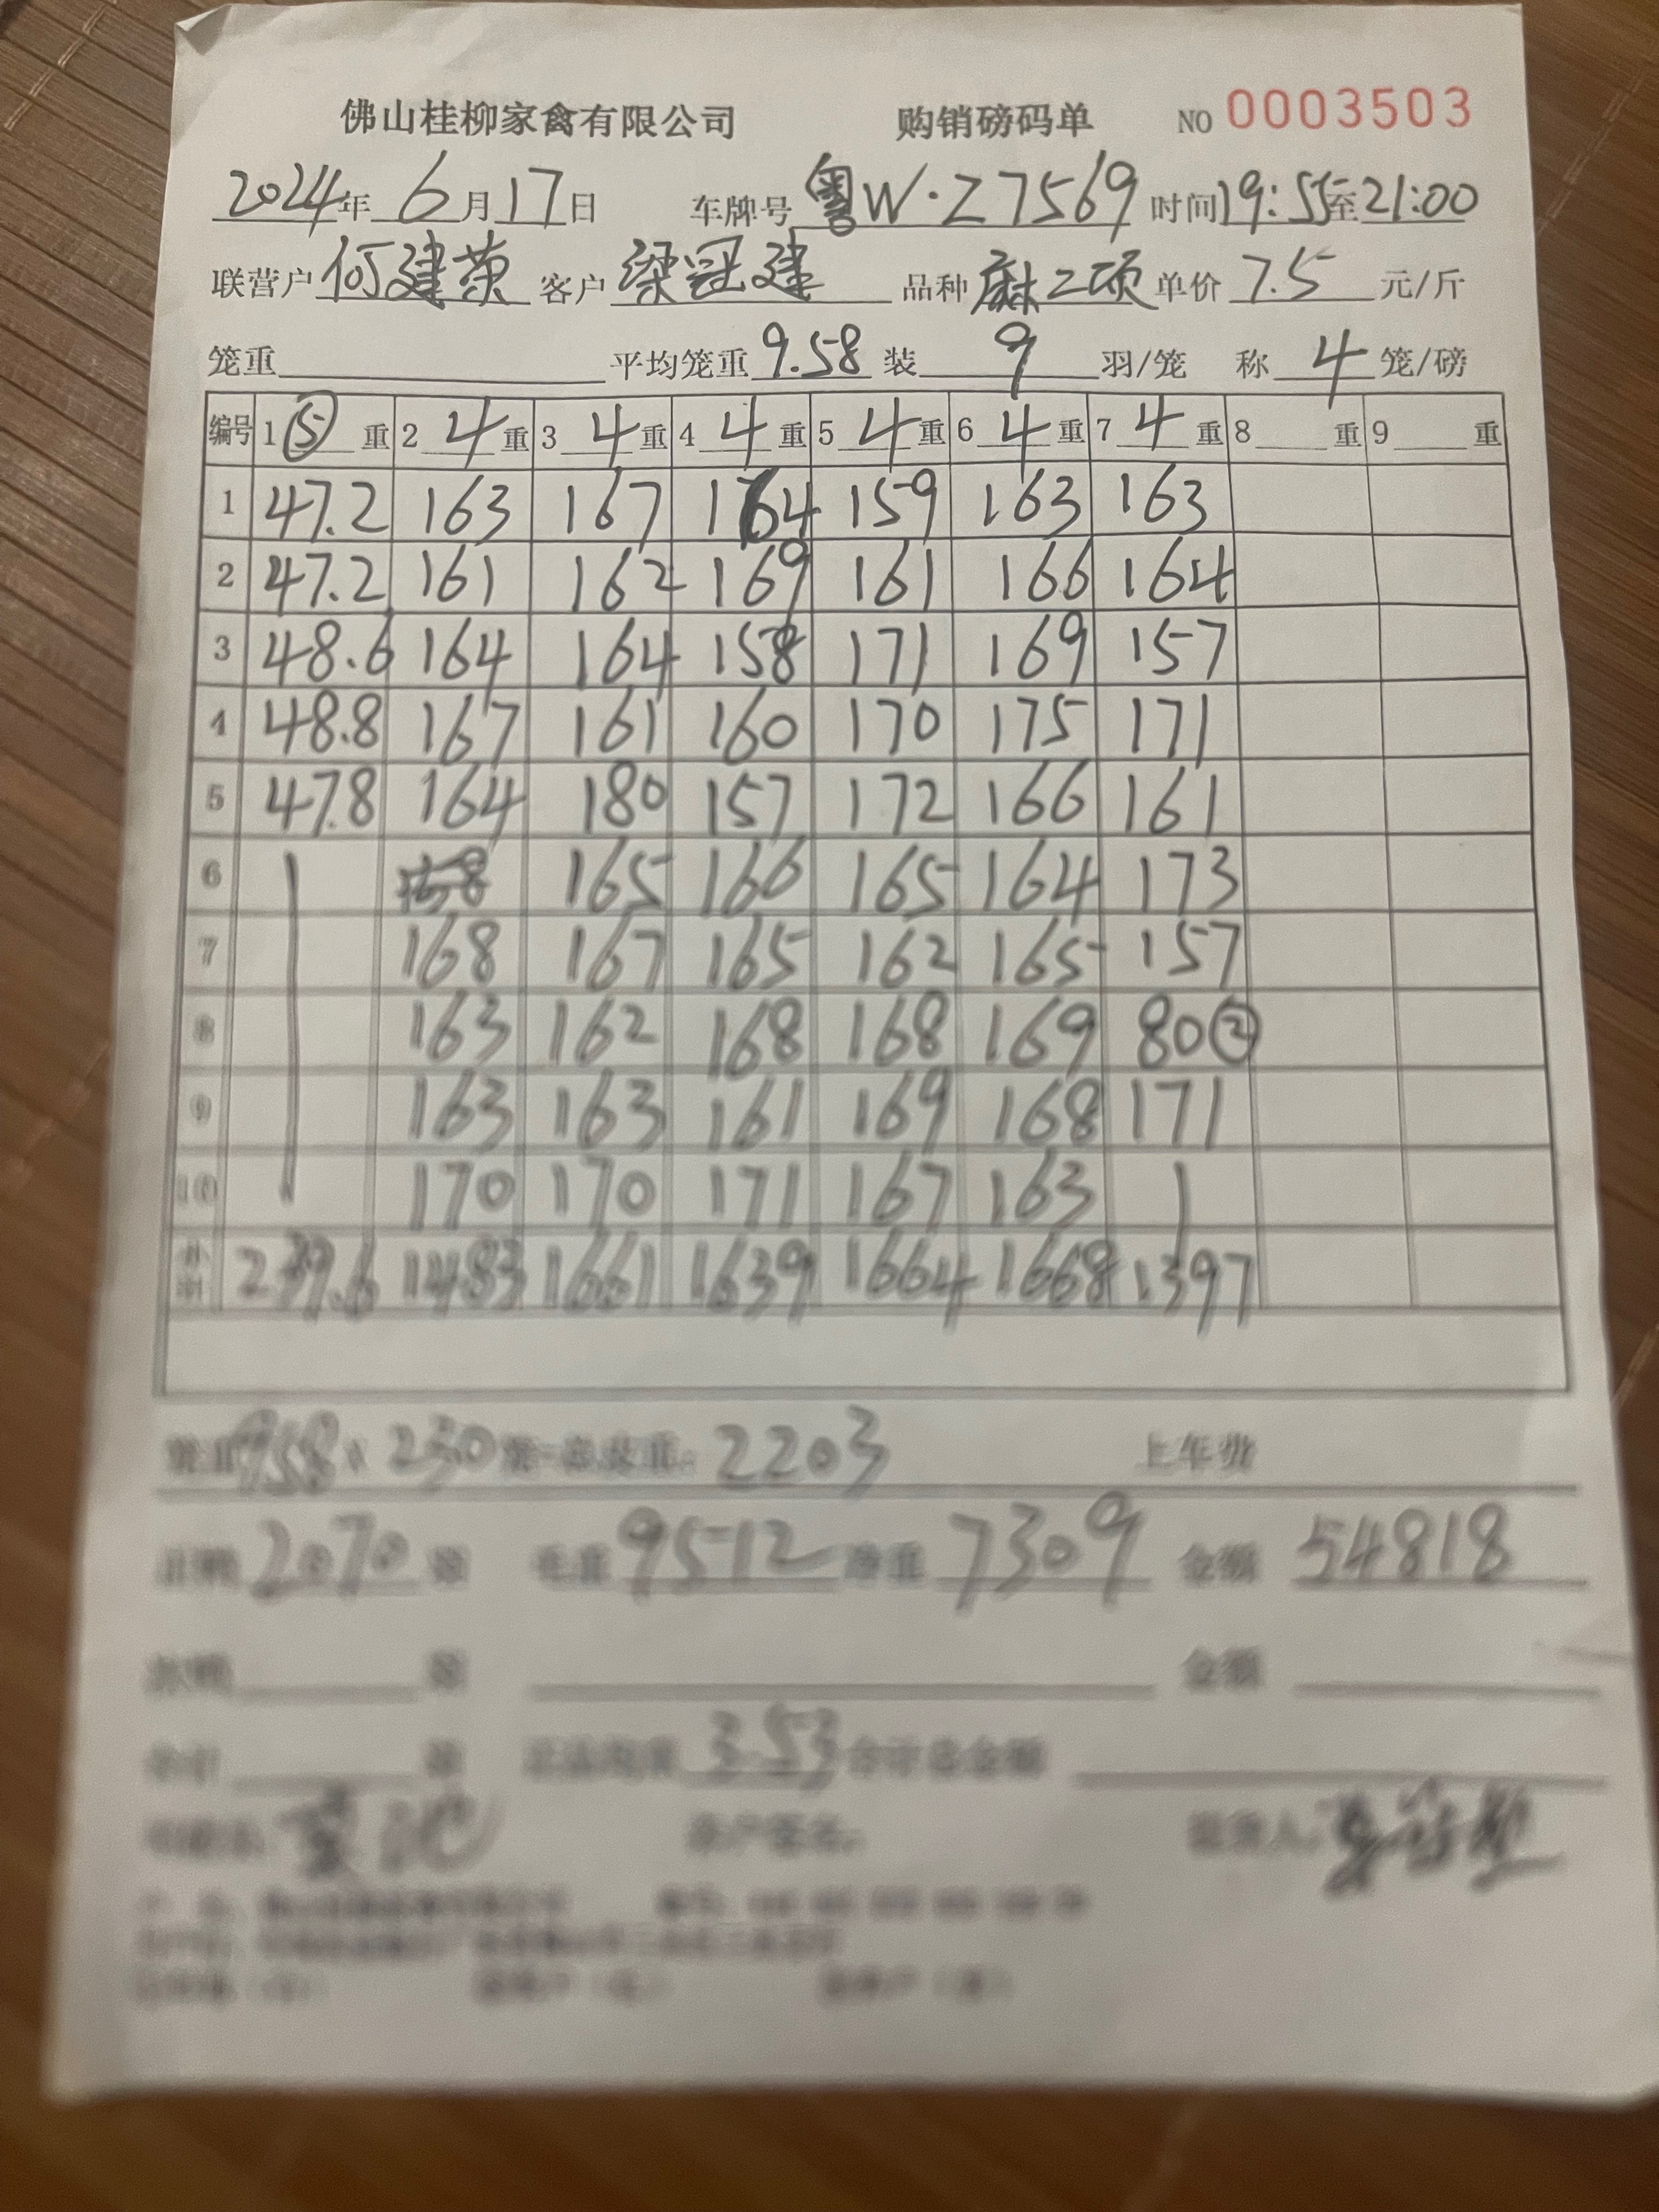 佛山桂柳家禽有限公司 购销磅码单 NO 0003503
2024年6月17日 车牌号 粤W·Z7569 时间19:55至21:00
联营户 何建荣 客户 梁冠建 品种 麻二项 单价 7.5 元/斤
笼重 平均笼重 9.58 装 9 羽/笼 称 4 笼/磅
编号 1 ⑤ 重 2 4 重 3 4 重 4 4 重 5 4 重 6 4 重 7 4 重 8 重 9 重
1 47.2 163 167 164 159 163 163
2 47.2 161 162 169 161 166 164
3 48.6 164 164 158 171 169 157
4 48.8 167 161 160 170 175 171
5 47.8 164 180 157 172 166 161
6 165 166 165 164 173
7 168 167 165 162 165 157
8 163 162 168 168 169 80②
9 163 163 161 169 168 171
10 170 170 171 167 163
小计 239.6 1483 1661 1639 1664 1668 1397
笼重 9.58 × 230 2203 上车费
正鸭 2070 毛重 9512 净重 7309 金额 54818
金额
3.53 合计总金额